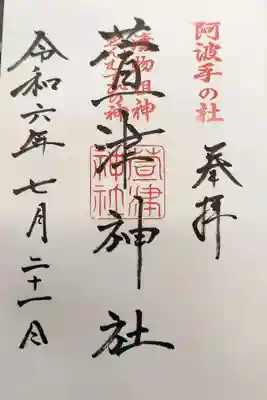 阿波手の社
奉拝
漬物祖神
萱津神社
萱津神社
令和六年七月二十一日